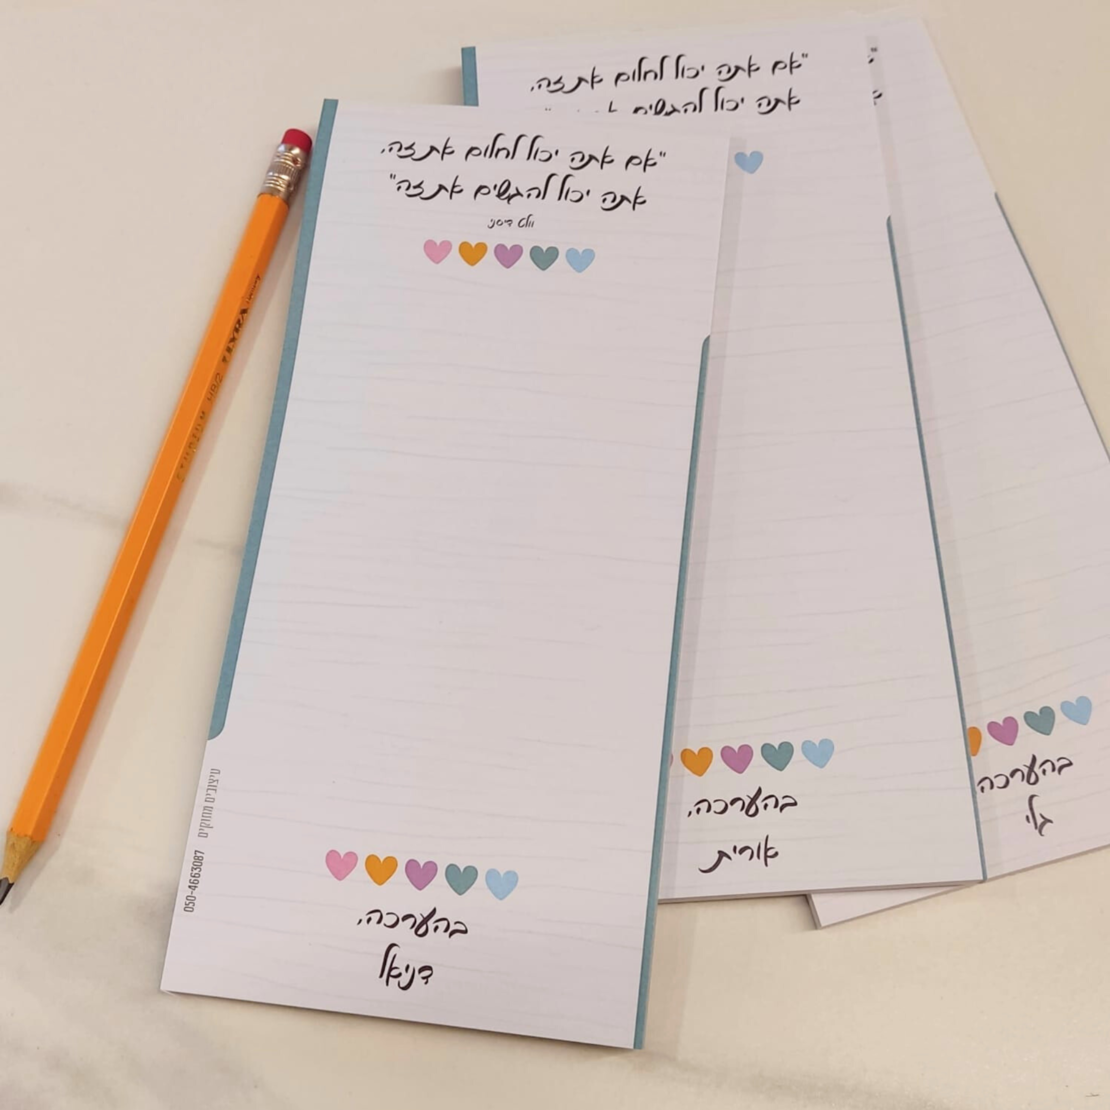 "אם אתה יכול לחלום את זה,
אתה יכול להגשים את זה"
וולט דיסני
בהערכה,
דניאל
עיצובים מתוקים 050-4663087
"אם אתה יכול לחלום את זה,
אתה יכול להגשים
בהערכה,
אורית
בהערכה
גלי
LYRA